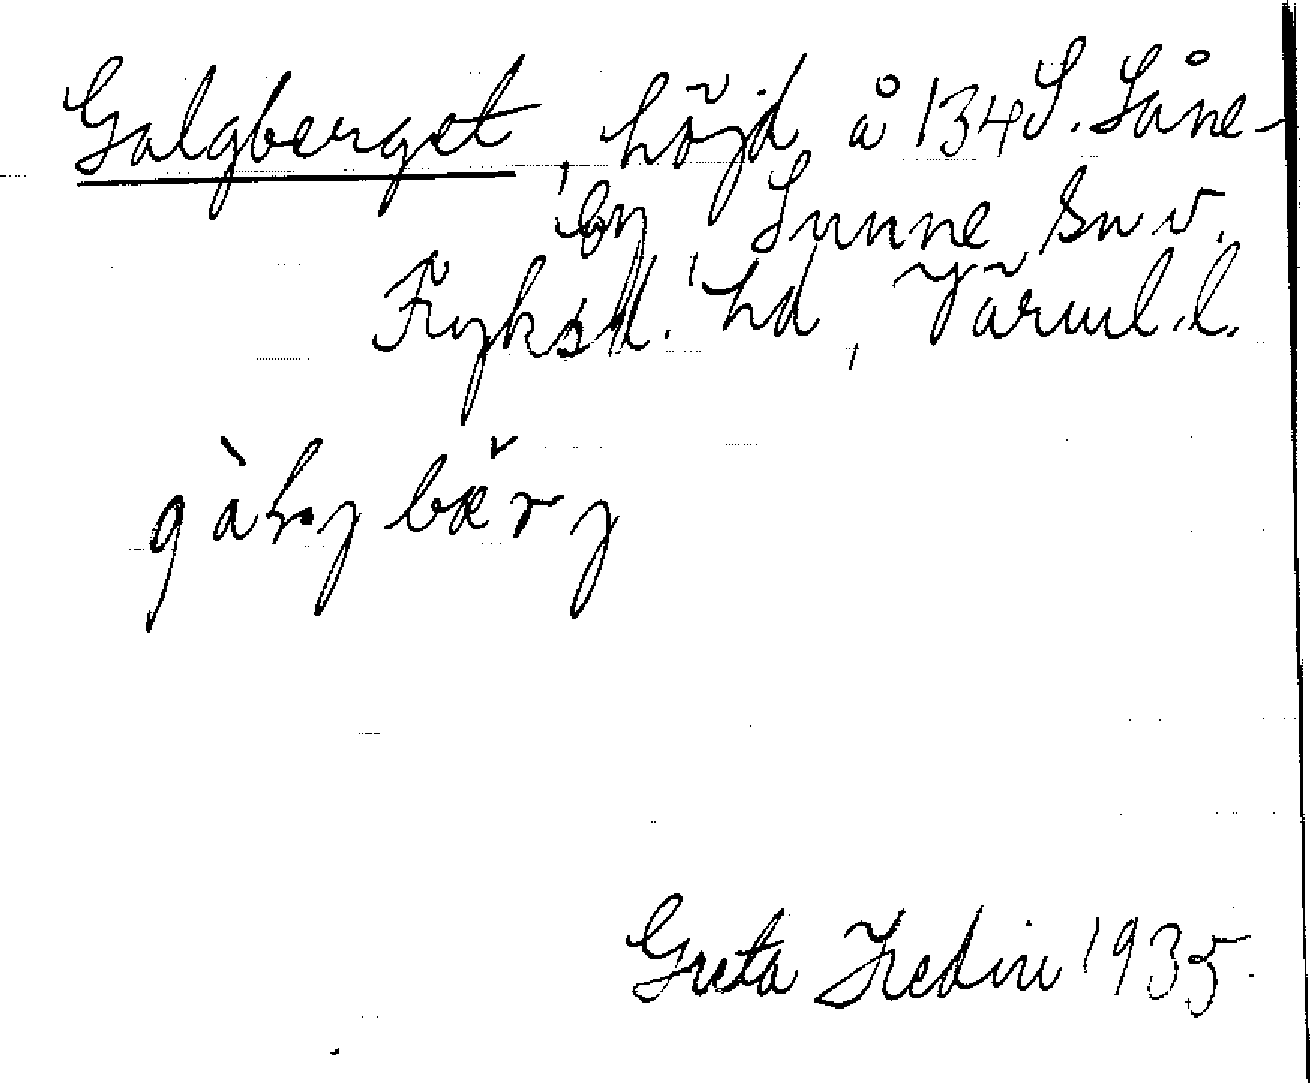 Galgberget, höjd, å 134 S. Låne-
by, Sunne sn v.
Fryksd. hd, Värml.l.
gàlgbærg
Greta Hedin 1935.